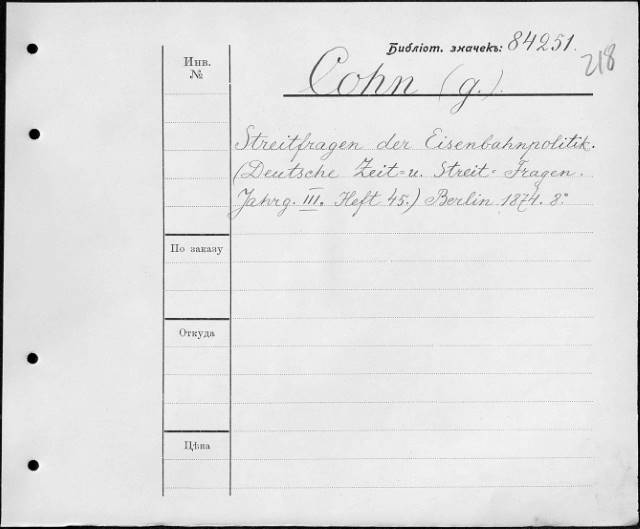 Библіот. значекъ: 84251.
218
Инв.
№
Cohn (g.).
Streitfragen der Eisenbahnpolitik.
(Deutsche Zeit= u. Streit= Fragen.
Jahrg. III. Heft 45.) Berlin 1874. 8º
По заказу
Откуда
Цѣна